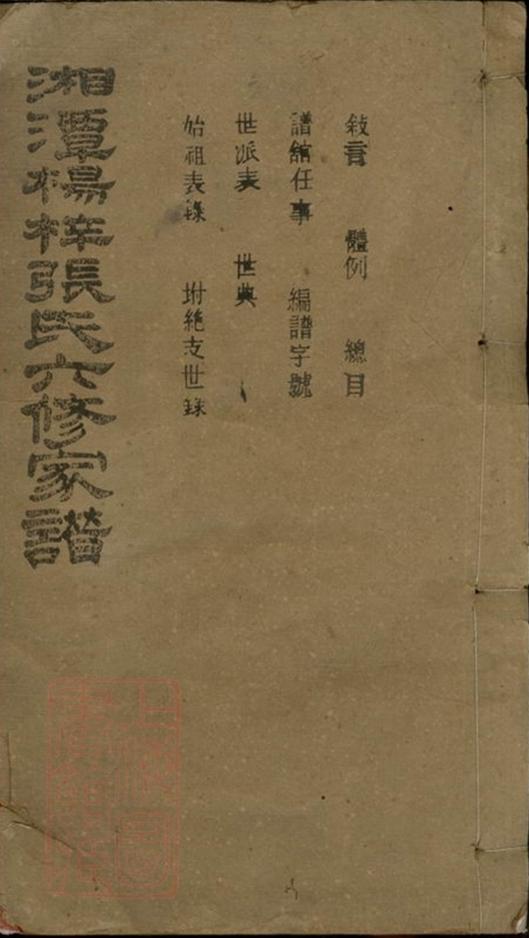 敍言 體例 總目
譜館任事 編譜字號
世派表 世典
始祖表錄 坿絶支世錄
湘潭楊梓張氏六修家譜